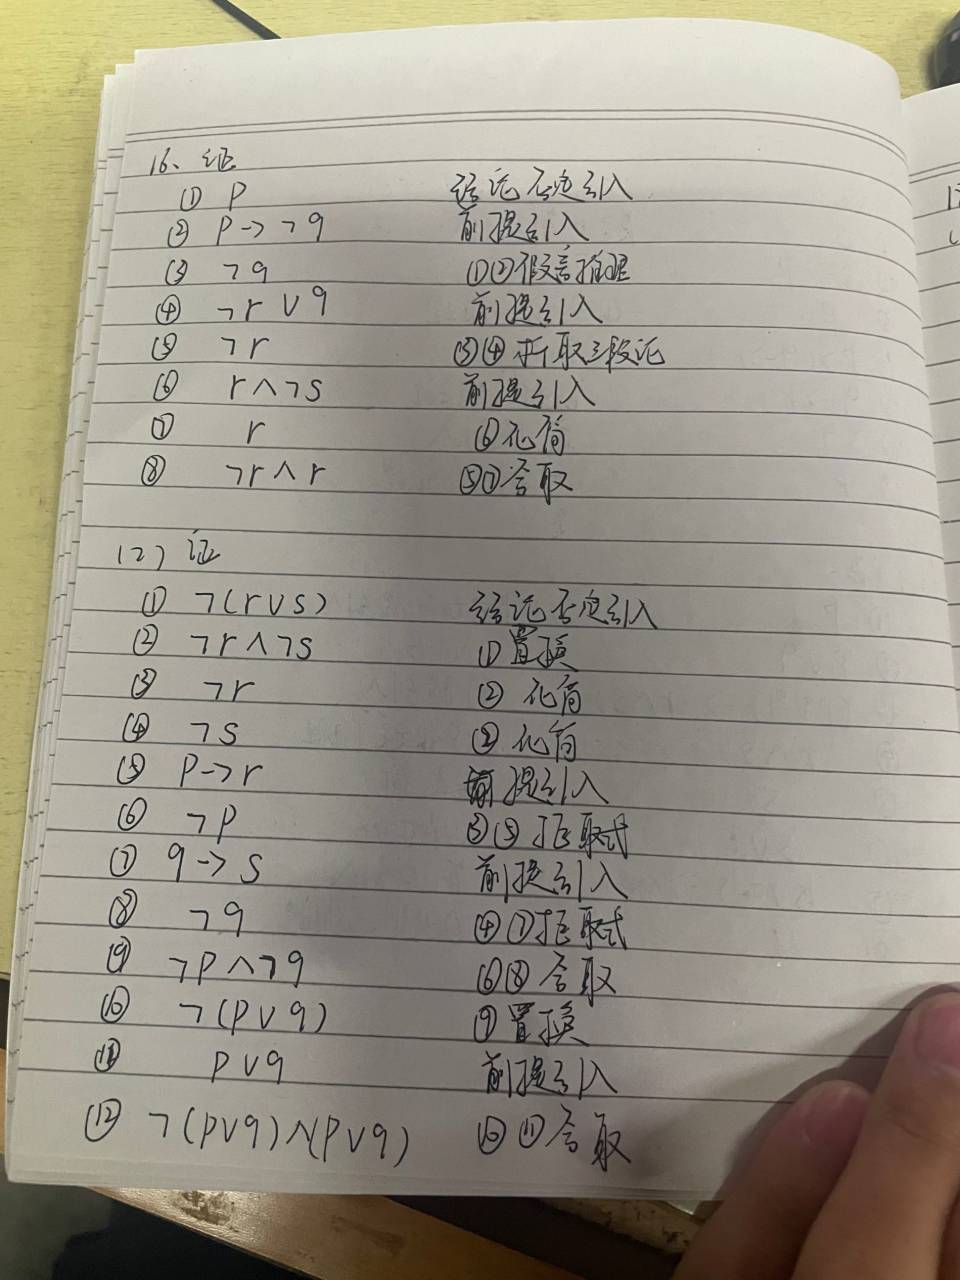 16、证
① p 结论否定引入
② p->¬q 前提引入
③ ¬q ①②假言推理
④ ¬r∨q 前提引入
⑤ ¬r ③④析取三段论
⑥ r∧¬s 前提引入
⑦ r ⑥化简
⑧ ¬r∧r ⑤⑦合取
(2) 证
① ¬(r∨s) 结论否定引入
② ¬r∧¬s ①置换
③ ¬r ②化简
④ ¬s ②化简
⑤ p->r 前提引入
⑥ ¬p ③⑤拒取式
⑦ q->s 前提引入
⑧ ¬q ④⑦拒取式
⑨ ¬p∧¬q ⑥⑧合取
⑩ ¬(p∨q) ⑨置换
⑪ p∨q 前提引入
⑫ ¬(p∨q)∧(p∨q) ⑩⑪合取